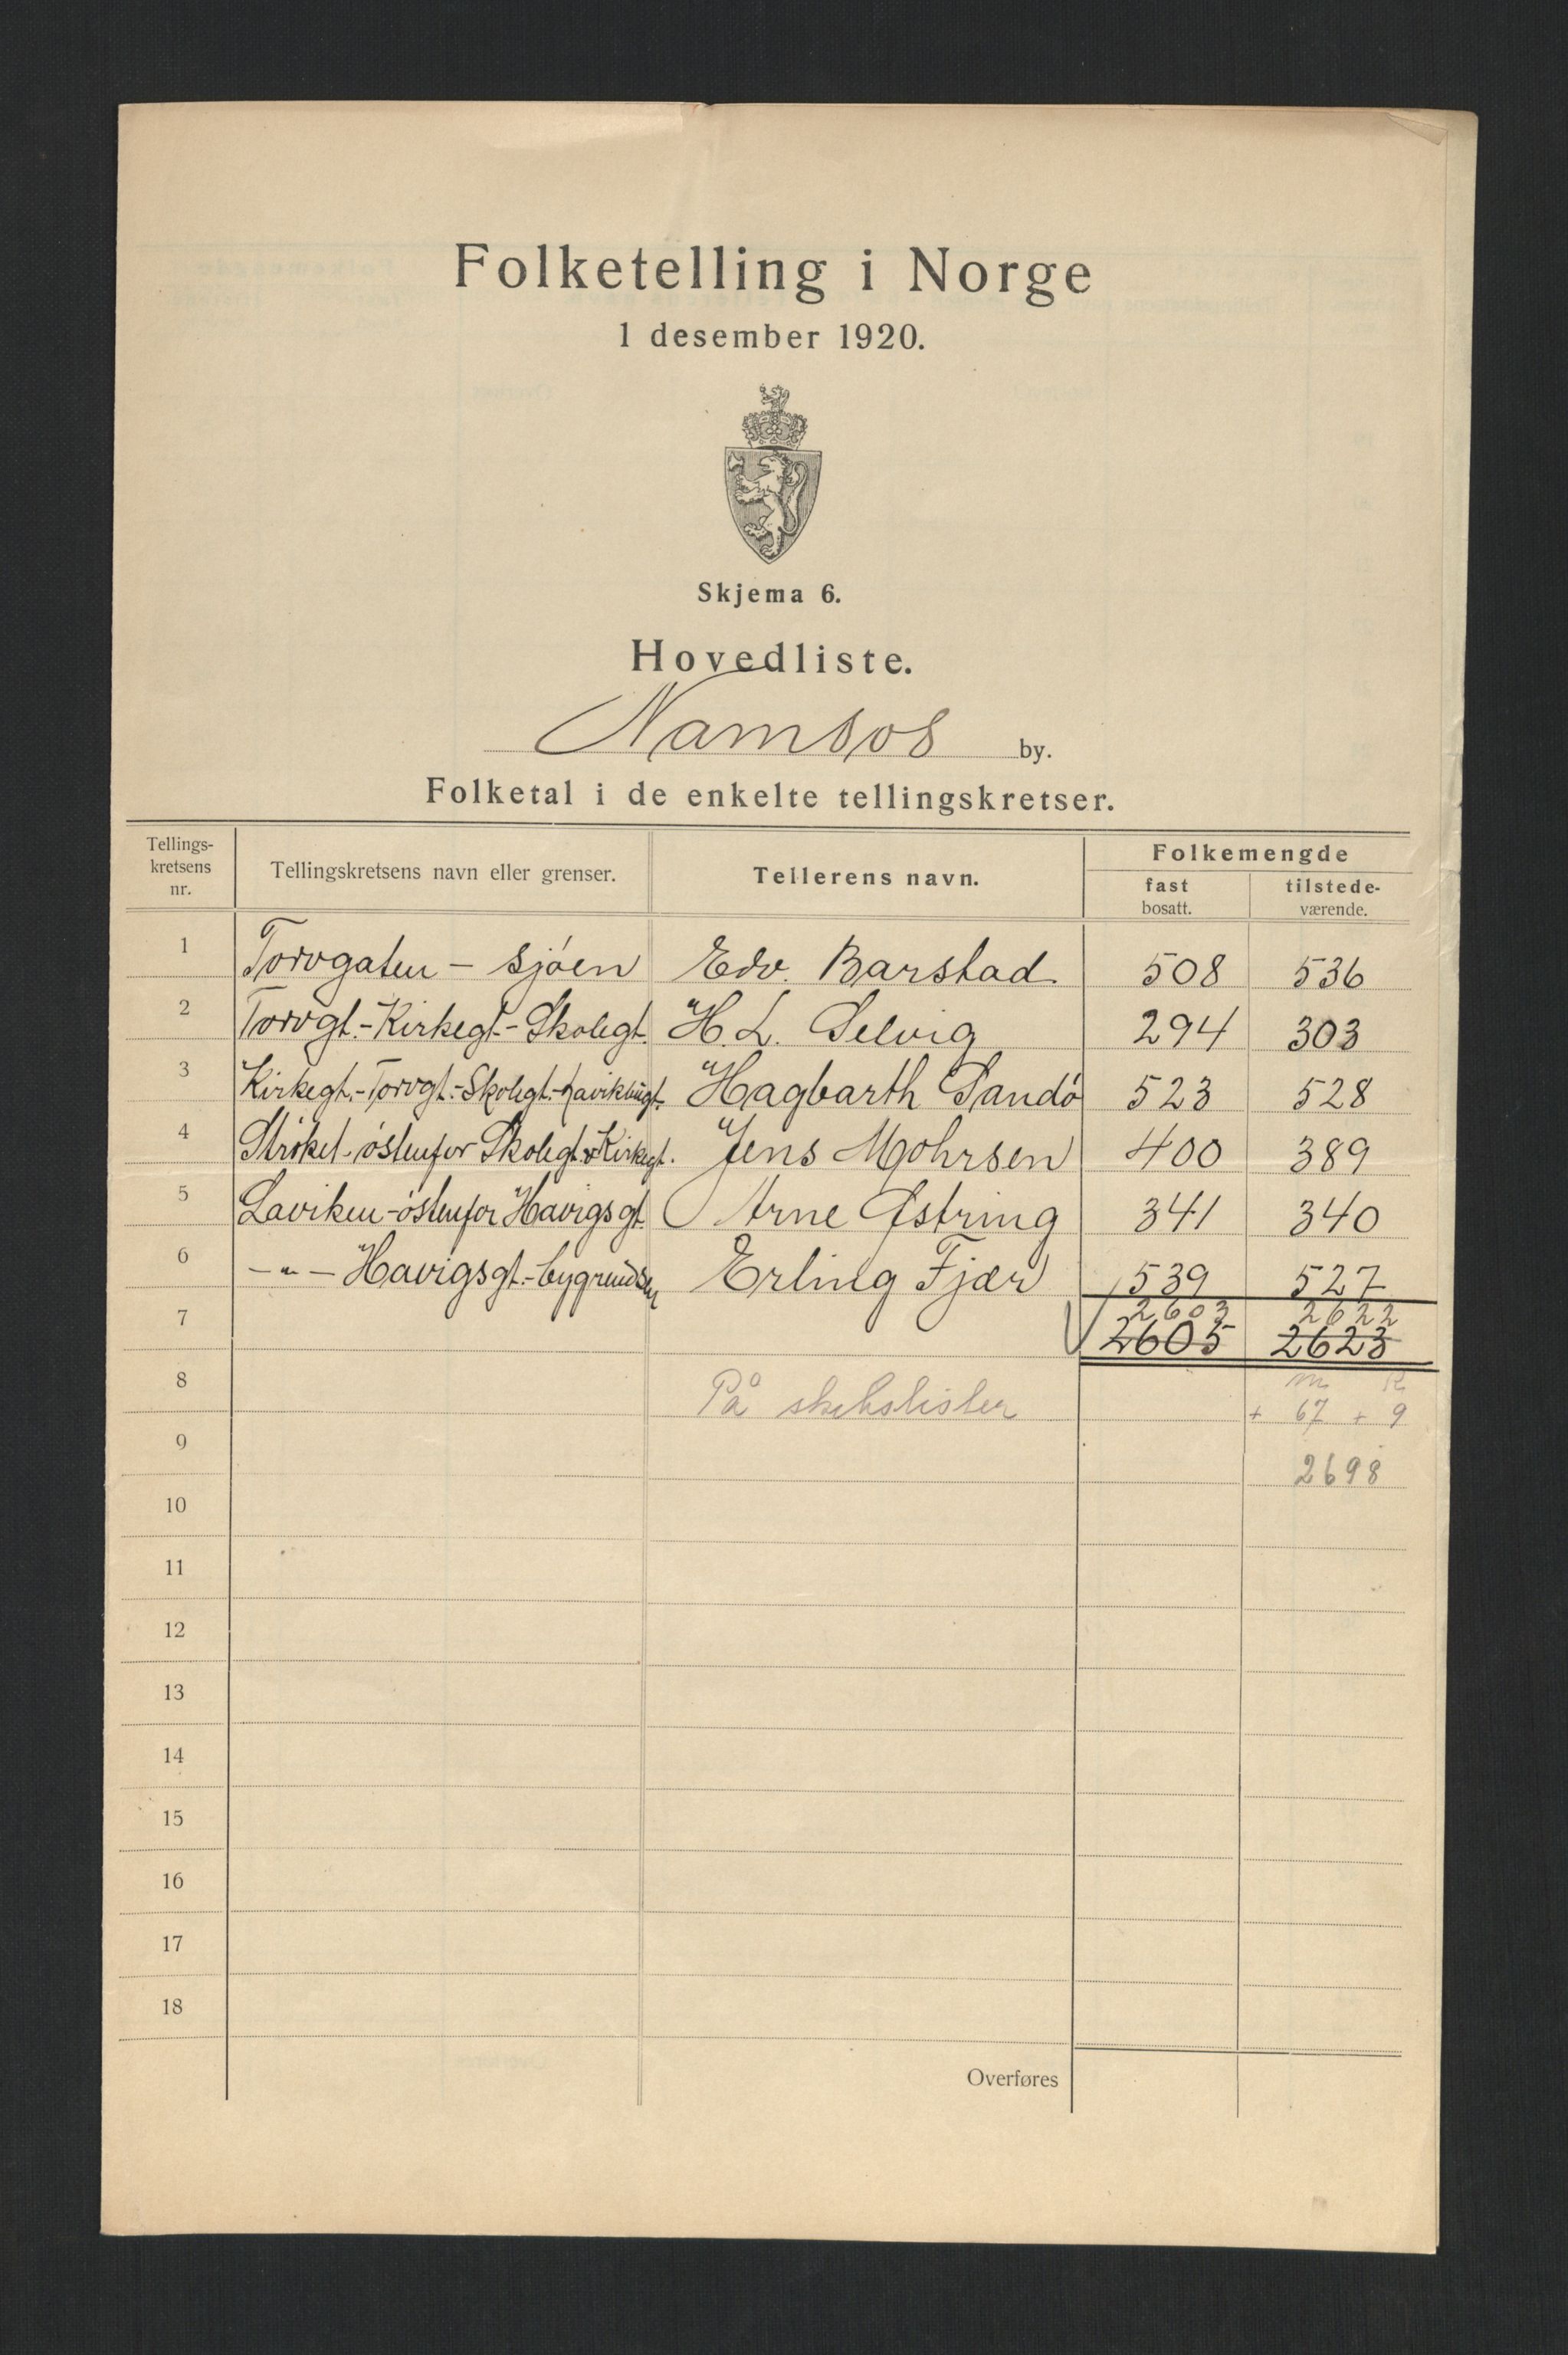 Folketelling i Norge
1 desember 1920.
Skjema 6.
Hovedliste.
Namsos by.
Folketal i de enkelte tellingskretser.
Tellings-kretsens nr. Tellingskretsens navn eller grenser. Tellerens navn. Folkemengde fast bosatt. tilstede-værende.
1 Torvgaten – Sjøen Edv. Barstad 508 536
2 Torvgt.-Kirkegt.-Skolegt. H. L. Selvig 294 303
3 Kirkegt.-Torvgt.-Skolegt.-Lavikbugt. Hagbarth Sandø 523 528
4 Strøket østenfor Skolegt. & Kirkegt. Jens Mohrsen 400 389
5 Laviken-østenfor Havigsgt. Arne Østring 341 340
6 –"– Havigsgt.-bygrendsen Erling Fjær 539 527
2603 2622
7 2605 2623
m k
8 På skibslister + 67 + 9
9 2698
10
11
12
13
14
15
16
17
18
Overføres